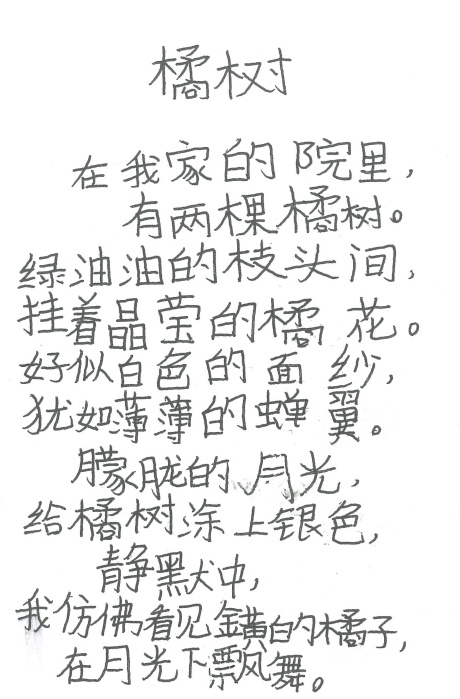 橘树
在我家的院里，
有两棵橘树。
绿油油的枝头间，
挂着晶莹的橘花。
好似白色的面纱，
犹如薄薄的蝉翼。
朦胧的月光，
给橘树涂上银色，
静默中，
我仿佛看见金黄的橘子，
在月光下飘舞。